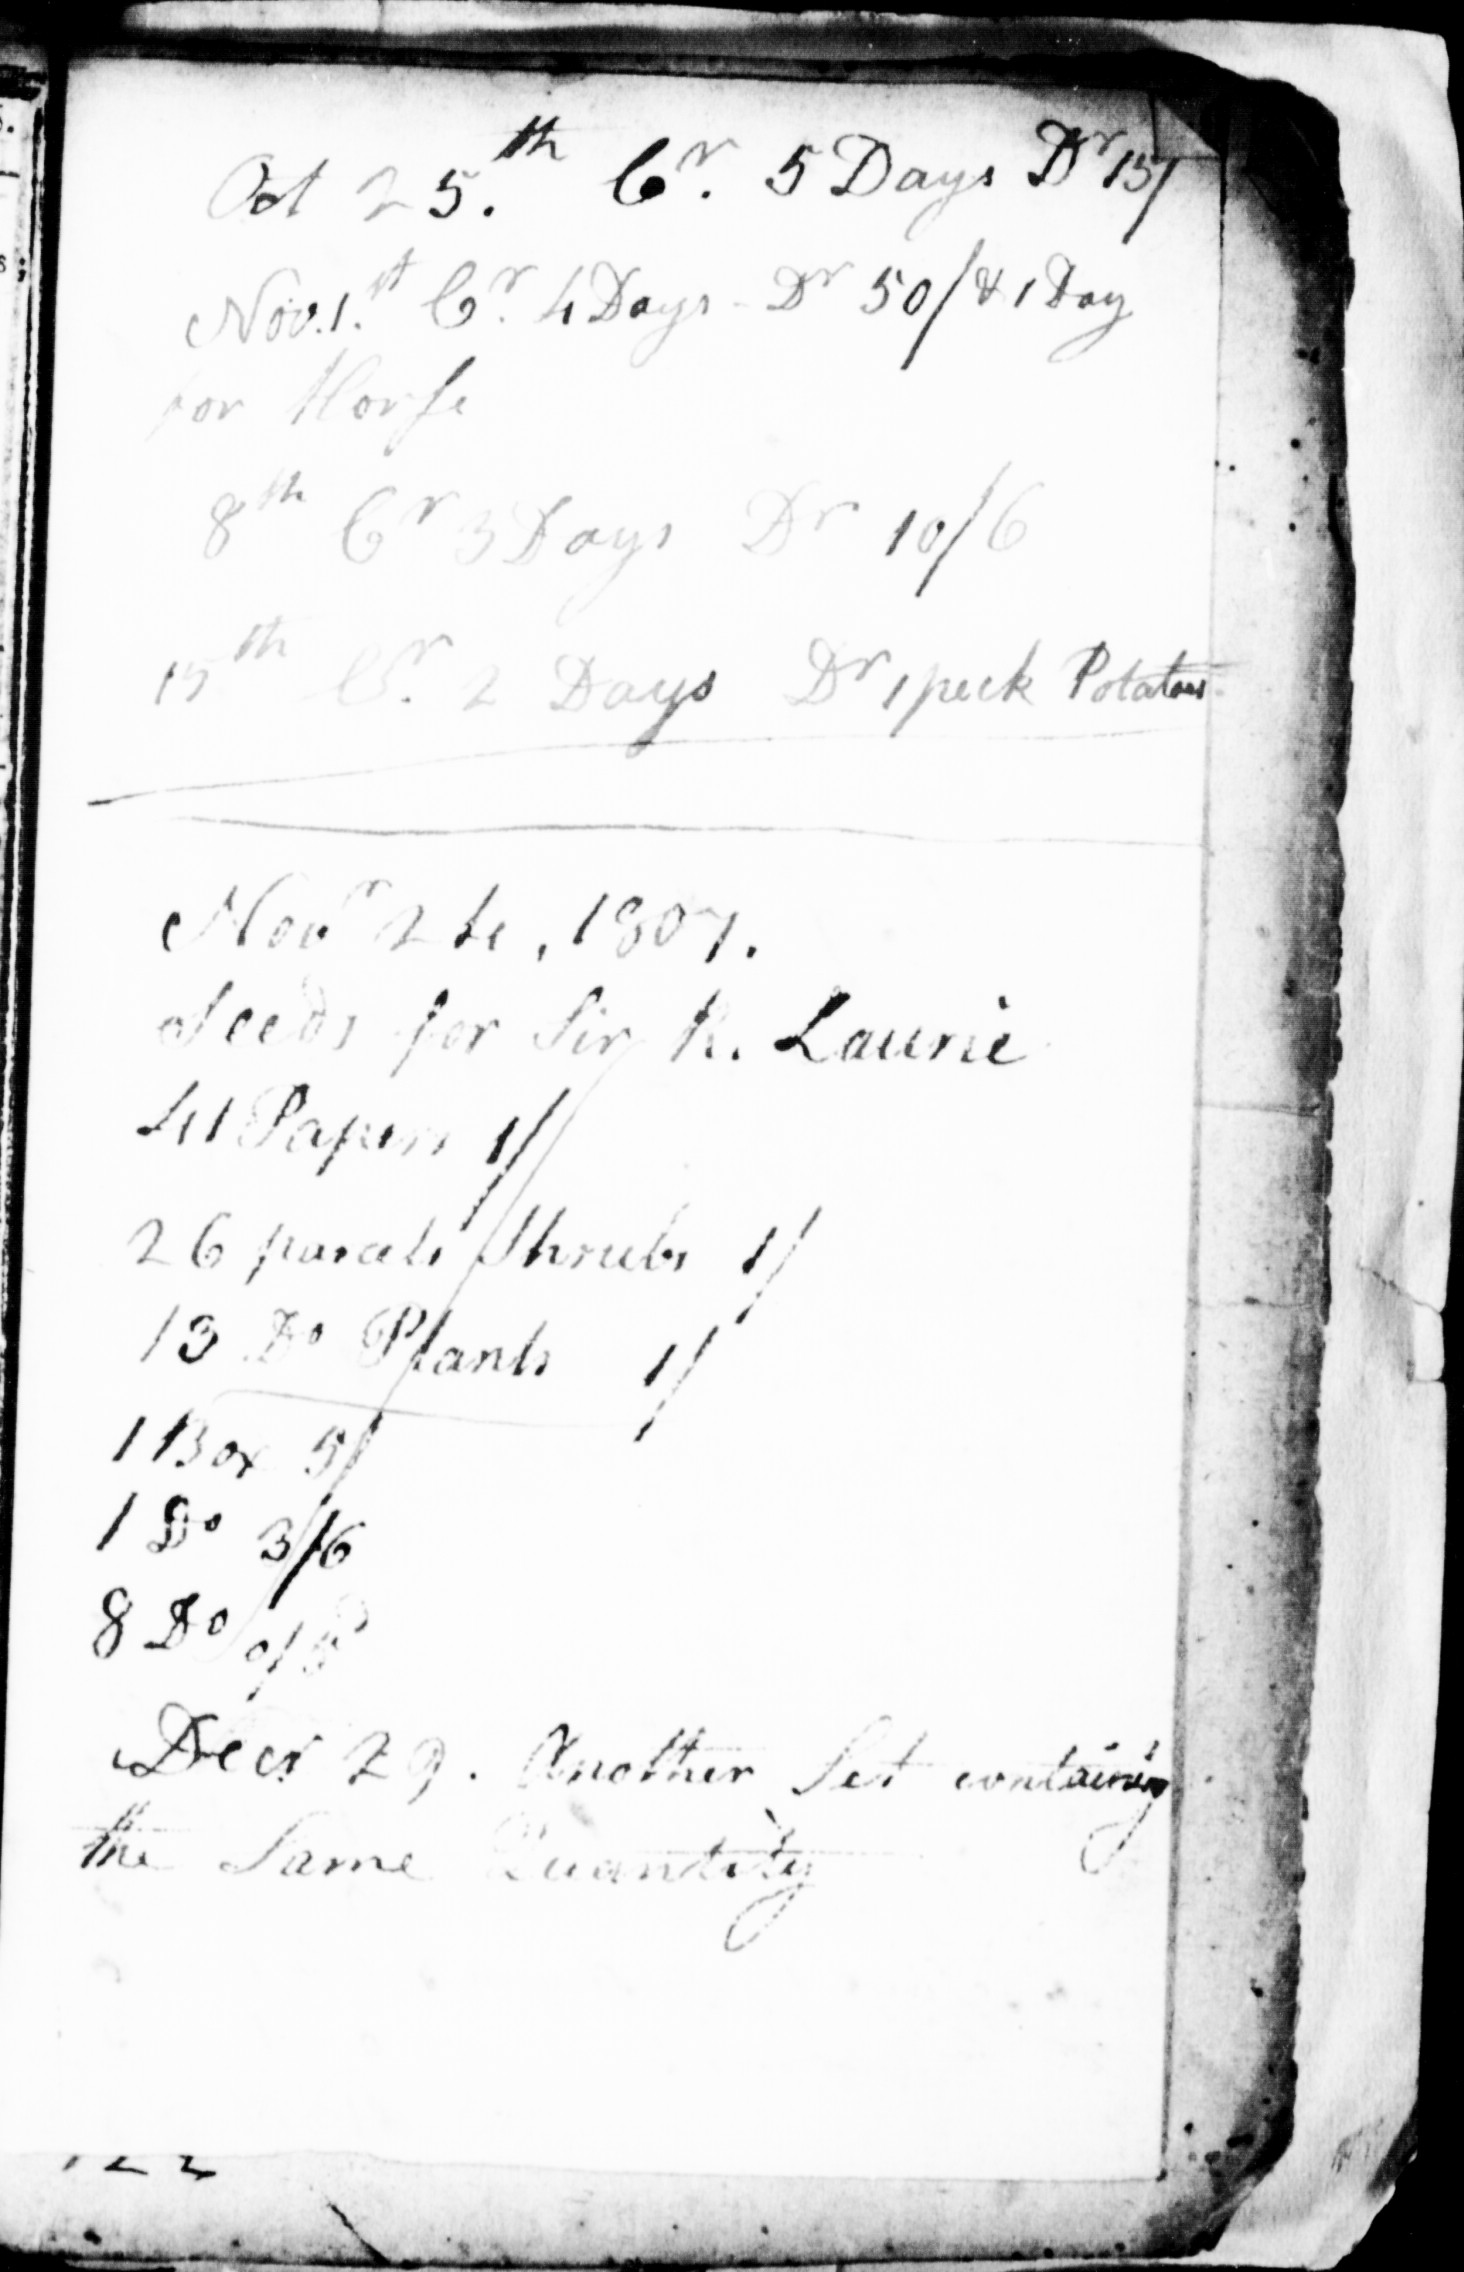 Oct 25.th Cr. 5 Days Dr 15/
Nov. 1.st Cr. 4 Days - Dr 50/ & 1 Day
for Horse
8th Cr 3 Days Dr 10/6
15th Cr. 2 Days Dr 1 peck Potatoes
Novr 24, 1807.
Seeds for Sir R. Laurie
41 Papers 1/
26 parcels Shrubs 1/
13 Do Plants 1/
1 Box 5/
1 Do 3/6
8 Do
Decr 29. Another Set containing
the Same Quantity